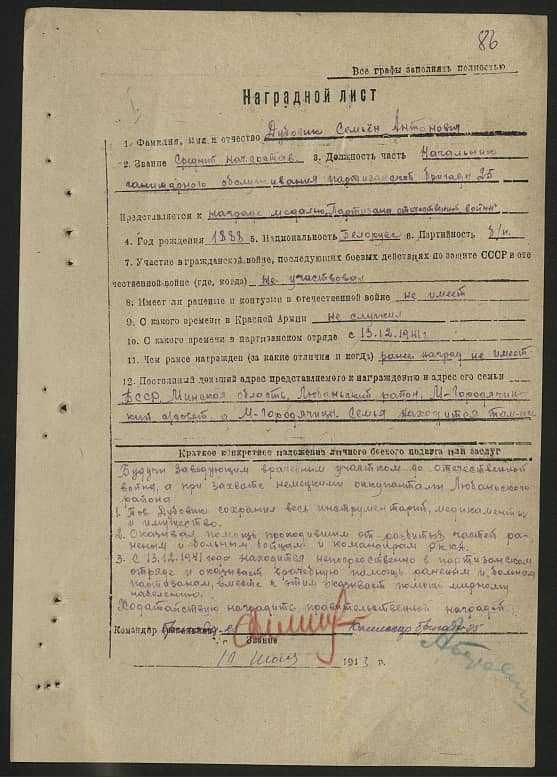 86
Все графы заполнять полностью
Наградной лист
1. Фамилия, имя и отчество Дубовик Семён Антонович
2. Звание Средний начсостав 3. Должность часть Начальник
санитарного обслуживания партизанской бригады 25
Представляется к награде медалью "Партизана отечественной войны"
4. Год рождения 1888 5. Национальность Белорусс 6. Партийность б/п
7. Участие в гражданской войне, последующих боевых действиях по защите СССР и оте
чественной войне (где, когда) Не участвовал
8. Имеет ли ранение и контузии в отечественной войне не имеет
9. С какого времени в Красной Армии не служил
10. С какого времени в партизанском отряде с 13.12.1941г
11. Чем ранее награжден (за какие отличия и когда) ранее наград не имеет
12. Постоянный домаший адрес представляемого к награждению и адрес его семьи
БССР, Минская область, Любаньский район, М-Городячиц-
кий с/совет д. М-Городячицы. Семья находится там-же
Краткое конкретное изложение личного боевого подвига или заслуг
Будучи заведующим врачебным участком до отечественной
войны, а при захвате немецкими оккупантами Любаньского
района
1. Тов. Дубовик сохранил весь инструментарий, медикаменты
и имущество.
2. Оказывал помощь проходившим от разбитых частей ра-
неным и больным бойцам и командирам РККА.
3. С 13.12.1941 года находится непосредственно в партизанском
отряде и оказывает врачебную помощь раненым и больным
партизанам, вместе с этим оказывает помощь мирному
населению.
Ходатайствую наградить правительственной наградой
Командер
Звание
10 1943 г.